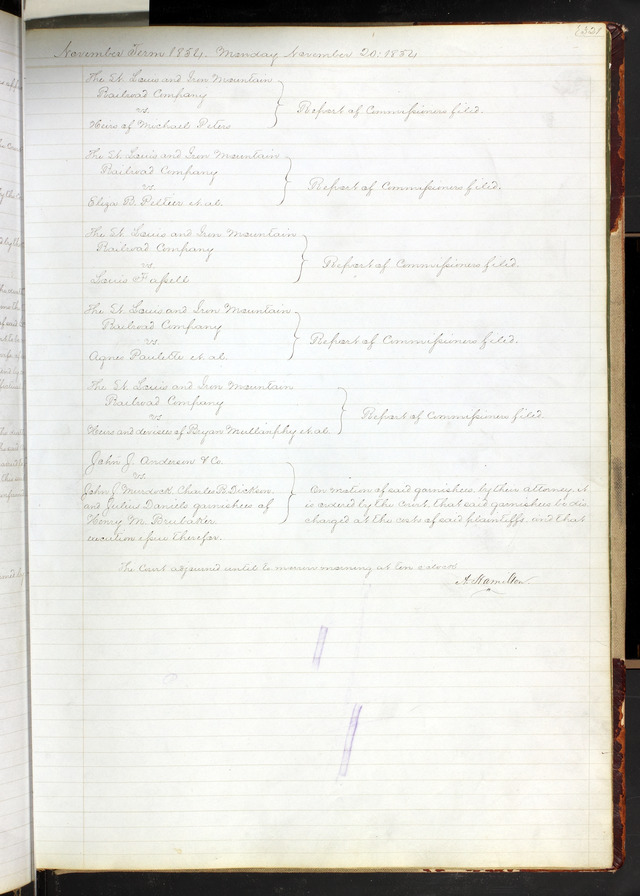 321
November Term 1854. Monday November 20: 1854
The St. Louis and Iron Mountain
Railroad Company
vs.
Heirs of Michael Peters
Report of Commissioners filed.
The St. Louis and Iron Mountain
Railroad Company
vs.
Eliza B. Peltier et. al.
Report of Commissioners filed.
The St. Louis and Iron Mountain
Railroad Company
vs.
Louis
Report of Commissioners filed.
The St. Louis and Iron Mountain
Railroad Company
vs.
Agnes Paulette et. al.
Report of Commissioners filed.
The St. Louis and Iron Mountain
Railroad Company
vs.
Heirs and devisees of Bryan Mullanphy et. al.
Report of Commissioners filed
John J. Anderson & Co.
vs.
John J. Murdock, Charles R. Dickson,
and Julius Daniels garnishees of
Henry M. Brubaker
On motion of said garnishees, by their attorney, it
is ordered by the Court, that said garnishees be dis
charged at the costs of said plaintiffs, and that
execution issue therefor.
The Court adjourned until to morrow morning at ten o'clock
A. Hamilton